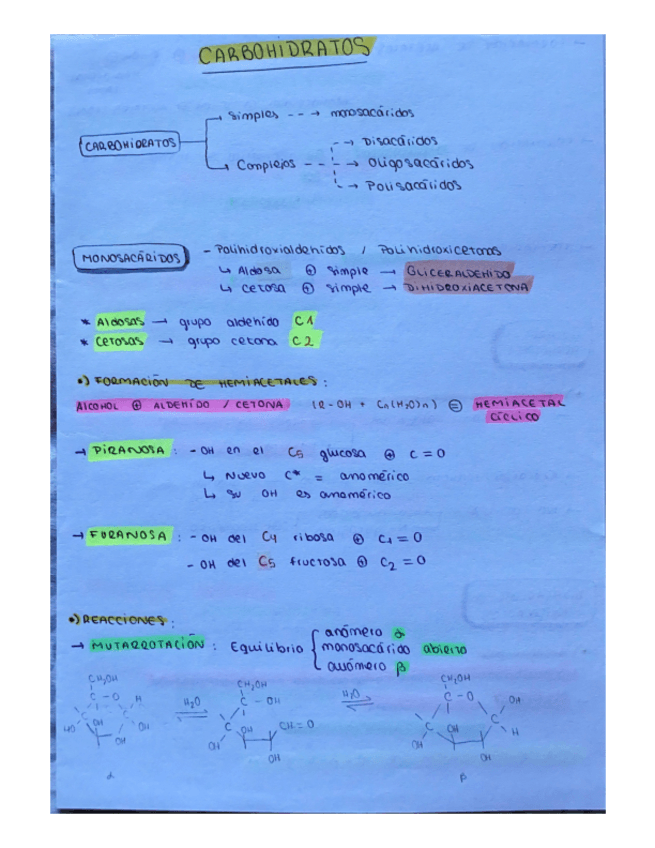 CARBOHIDRATOS
Simples --→ monosacáridos
CARBOHIDRATOS
--→ Disacáridos
Complejos --→ Oligosacáridos
--→ Polisacáridos
MONOSACÁRIDOS - Polihidroxialdehidos / Polihidroxicetonas
↳ Aldosa ⊕ simple → GLICERALDEHIDO
↳ cetosa ⊕ simple → DIHIDROXIACETONA
* Aldosas → grupo aldehido C1
* Cetosas → grupo cetona C2
•) FORMACIÓN DE HEMIACETALES:
ALCOHOL ⊕ ALDEHÍDO / CETONA (R-OH + Cn(H2O)n) ⊜ HEMIACETAL
CÍCLICO
→ PIRANOSA: -OH en el C5 glucosa ⊕ C=O
↳ Nuevo C* = anomérico
↳ su OH es anomérico
→ FURANOSA: -OH del C4 ribosa ⊕ C1=O
-OH del C5 fructosa ⊕ C2=O
•) REACCIONES:
anómero α
→ MUTARROTACIÓN: Equilibrio { monosacárido abierto
anómero β
CH2OH CH2OH CH2OH
C - O H H2O C - OH H2O C - O OH
C OH C C OH CH=O C OH C
HO OH OH OH H
OH OH OH
α β